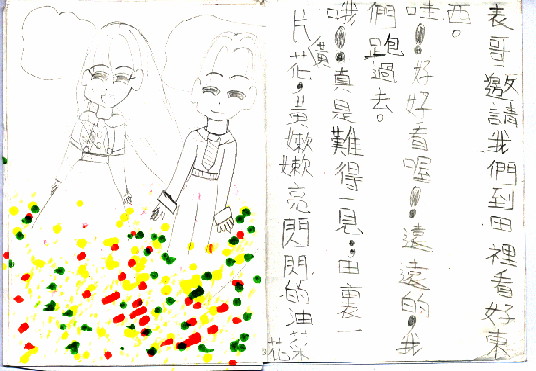 表哥邀請我們到田裡看好東
西。
哇!好好看喔!遠遠的,我
們跑過去。
哦!真是難得一見,田裏一
片黃花,黃嫩嫩亮閃閃的油菜
花